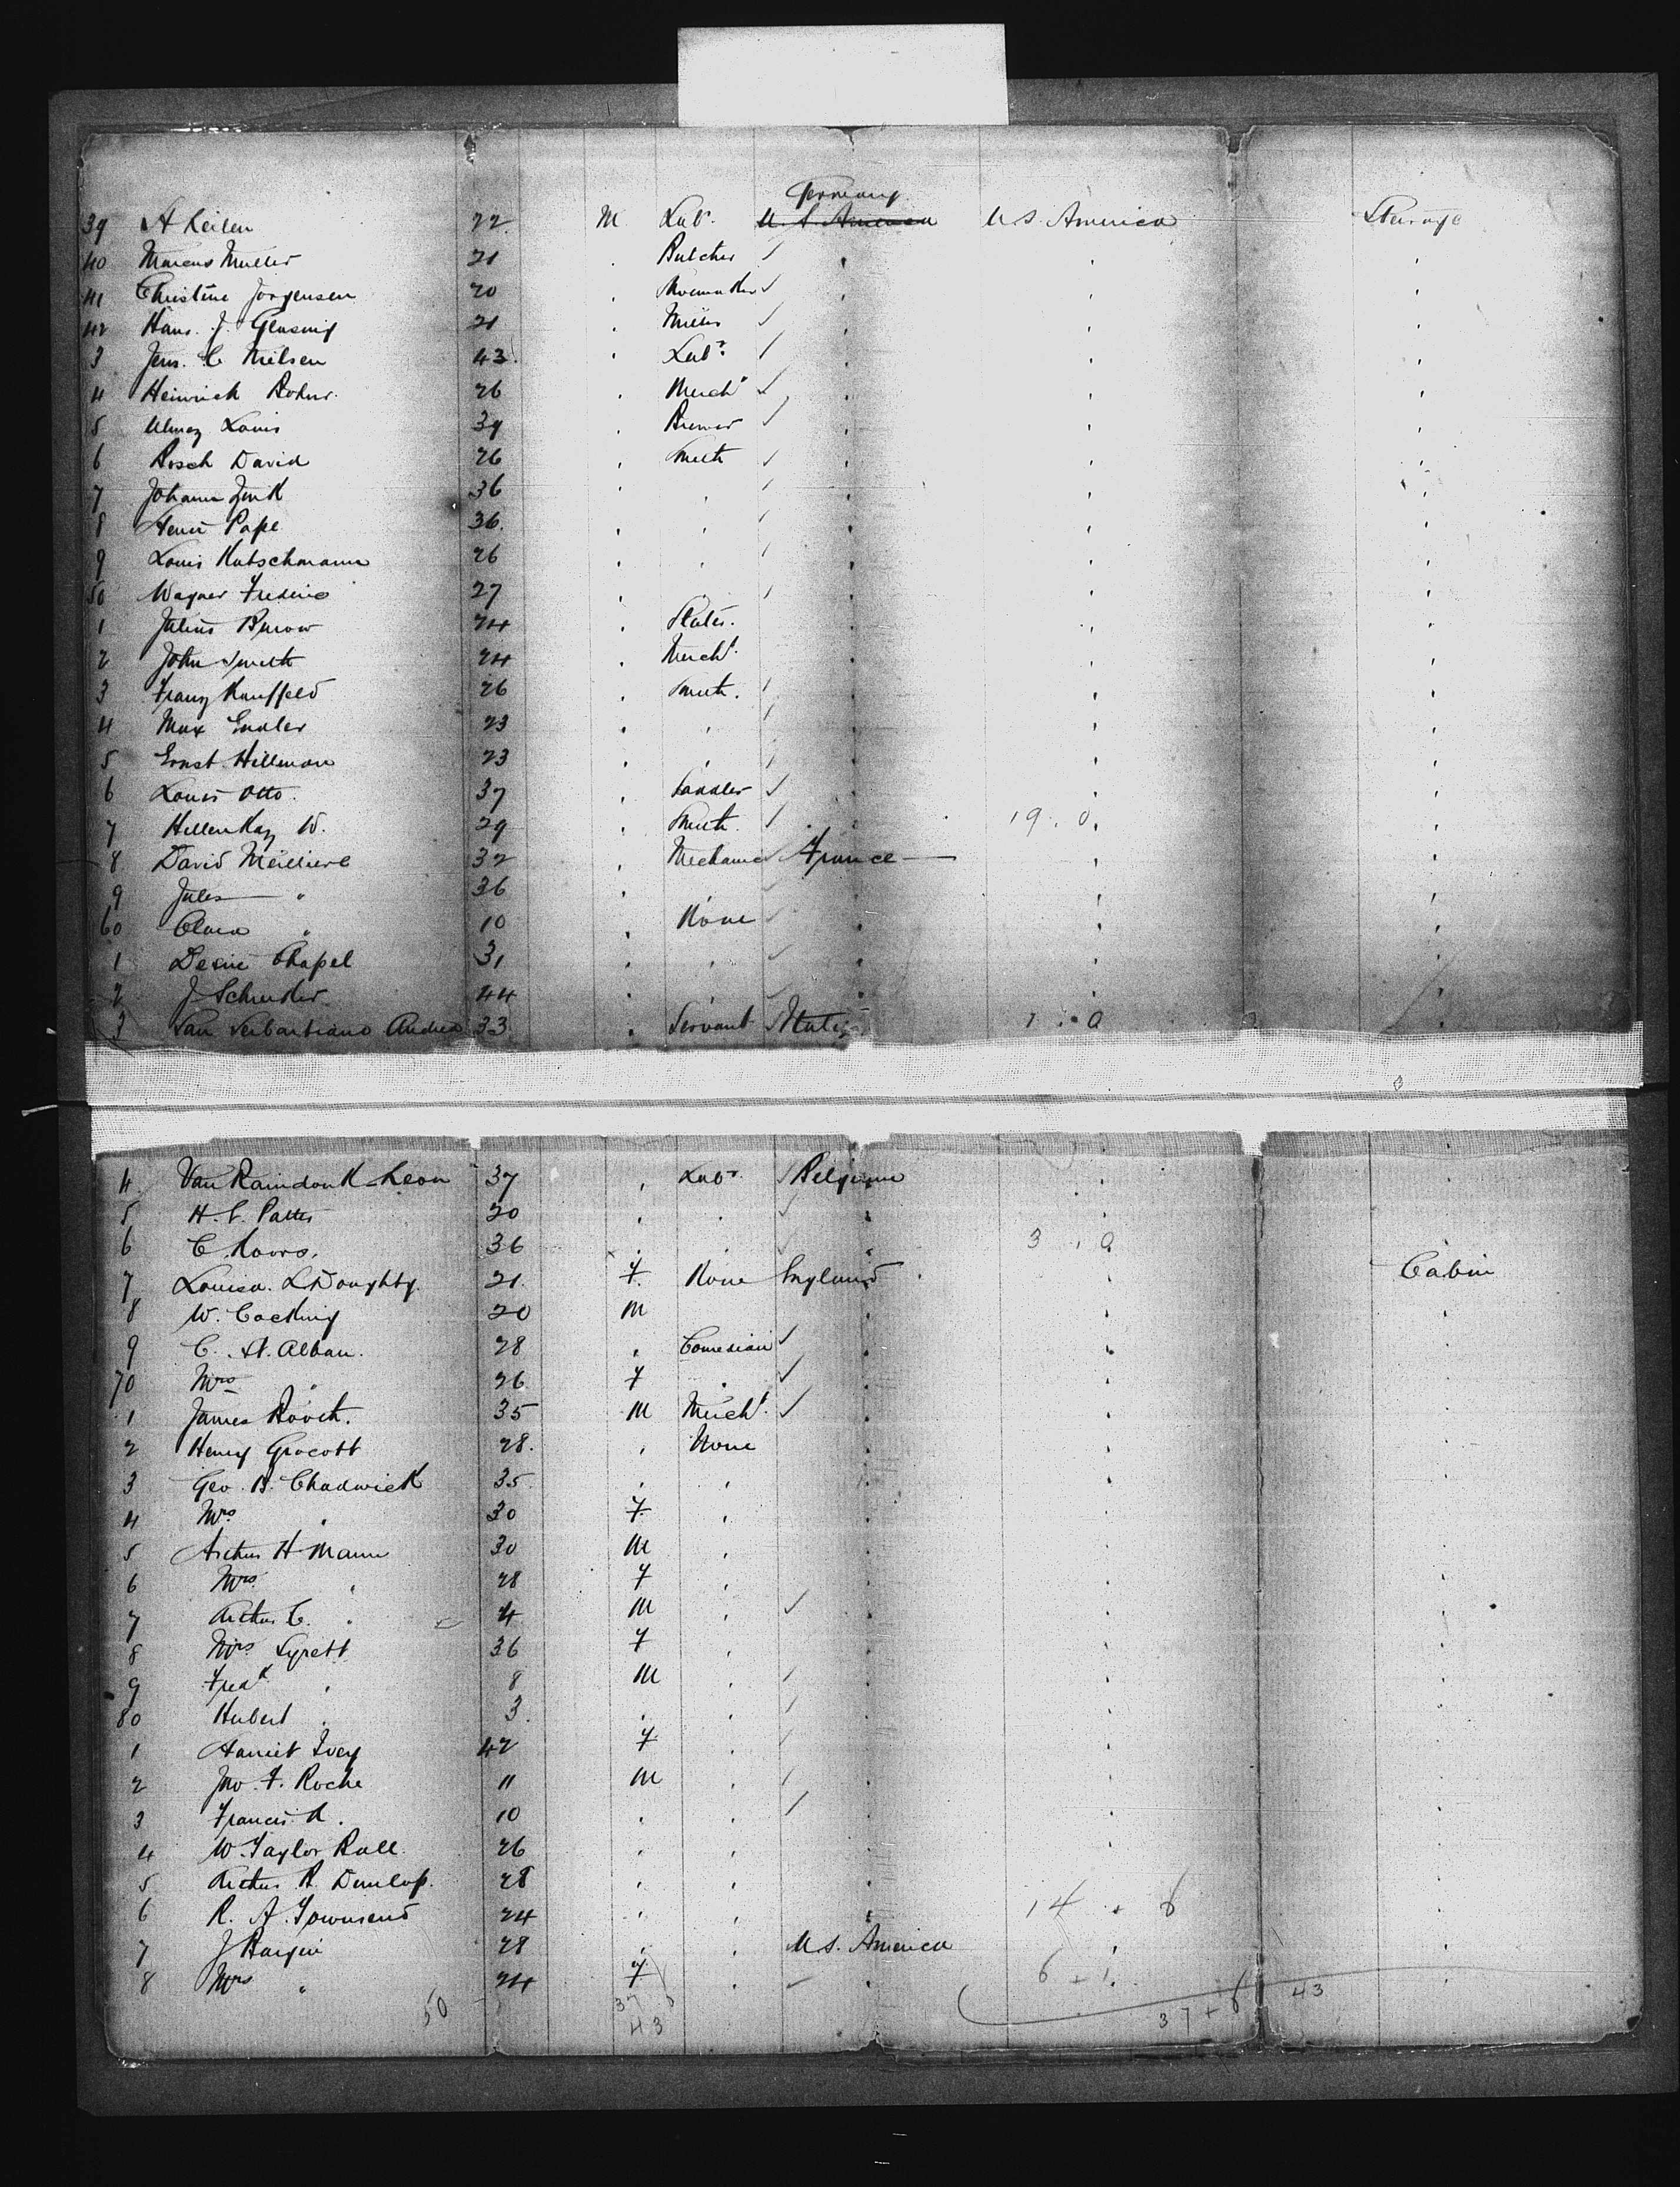 Germany
39 A Leisen 22. M. Labr. U. S. America U S. America Steerage
40 Marcus Muller 21 Butcher
41 Christine Jorgensen 20 Shoemaker
42 Hans. J. 21 Miller
3 Jens. C. Nielsen 43. Labr.
4 Heinrich 26 Mercht
5 Louis 39 Brewer
6 Rosch David 26 Smith
7 Johann Zink 36
8 Henri Pape 36.
9 Louis Kutschmann 26
50 Wagner 27
1 Julius Burow 24 Slater.
2 John Smith 24 Mercht.
3 Franz Kauffeld 26 Smith.
4 Max 23
5 Ernst Hillman 23
6 Louis Otto. 37 Saddler
7 W. 29 Smith. 19 . 0.
8 David Meilliere 32 Mechanic France
9 Jules " 36
60 Clara " 10 None
1 Chapel 31
2 J Schneider 44
3 San Serbastiano Andrea 33 Servant Italy 1 . 0
4 Van Raindonk Leon 37 Labr Belgium
5 H. C. 20
6 C. Koovs. 36 3 . 0
7 Louisa. L Doughty. 21. F. None England Cabin
8 W. Cocking 20 M
9 C. St. Alban. 28 Comedian
70 Mrs " 26 F
1 James Booth. 35 M Mercht.
2 Henry Grocott 28. None
3 Geo. B. Chadwick 35
4 Mrs " 30 F.
5 Arthur H Mann 30 M
6 Mrs. " 28 F
7 Arthur C. " 4 M
8 Mrs Syrett 36 F
9 Fredk " 8 M
80 Hubert " 3.
1 Harriet Ivey 42 F
2 Jno. F. Roche 11 M
3 Francis 10
4 W. Taylor 26
5 Arthur R Dunlop. 28
6 R. A. Townsend 24 14 . 6
7 J 28 U S. America
8 Mrs " 24 F 6 + 1.
50 37 6 37 + 6 43
43